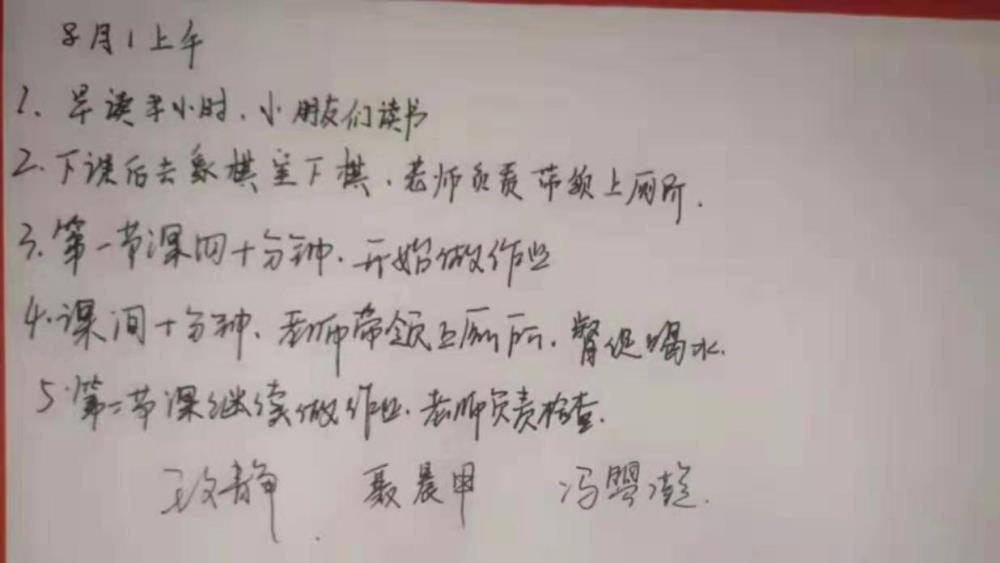 8月1上午
1、早读半小时、小朋友们读书
2、下课后去象棋室下棋、老师负责带领上厕所.
3、第一节课四十分钟、开始做作业
4、课间十分钟、老师带领上厕所、督促喝水.
5、第二节课继续做作业、老师负责检查.
静 聂晨甲 冯盟